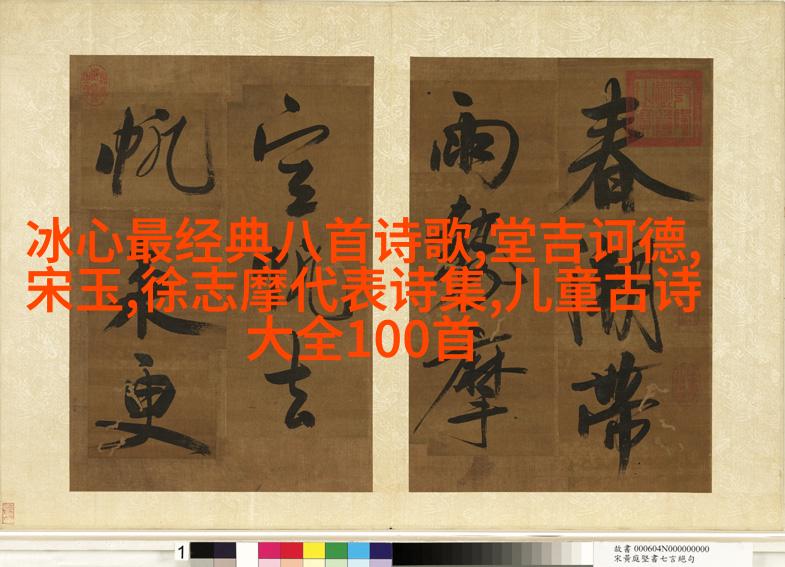 春潮帶
雨摩
空去
帆更
冰心最经典八首诗歌,堂吉诃德,
宋玉,徐志摩代表诗集,儿童古诗
大全100首
1
故書 000604N000000000
宋黃庭堅書七言絕句